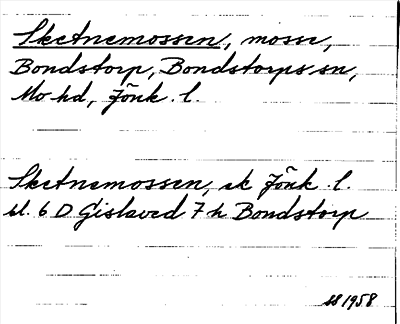 Sketnemossen, mosse,
Bondstorp, Bondstorps sn,
Mo hd, Jönk. l.
Sketnemossen, ek Jönk. l.
bl. 6 D Gislaved 7 h Bondstorp
1958